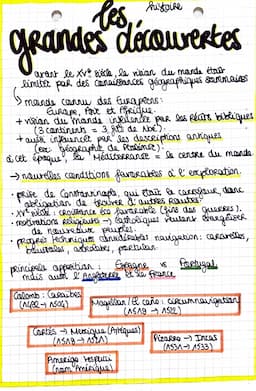 histoire
les
grandes découvertes
avant le XVe siècle, la vision du monde était
limitée par des connaissances géographiques sommaires
↳ monde connu des Européens :
Europe, Asie et Afrique.
+ vision du monde influencée par les récits bibliques
(3 continents = 3 fils de Noé).
+ aussi influencée par les descriptions antiques
(ex: géographie de Ptolémée).
à cet époque, la Méditerranée = le centre du monde
→ nouvelles conditions favorables à l'exploration.
• prise de Constantinople, qui était le carrefour, donc
obligation de trouver d'autres routes.
• XVe siècle : croissance éco favorable (fin des guerres).
• motivations religieuses → catholiques veulent évangéliser
de nouveaux peuples.
• progrès techniques considérables navigation : caravelles,
boussoles, astrolabe, portulan.
principale opposition : Espagne vs Portugal
mais aussi l'Angleterre et la France
Colomb : Caraïbes
(1492 → 1504)
Magellan / El cano : circumnavigation
(1519 → 1522)
Cortés → Mexique (Aztèques)
(1519 → 1521)
Pizarro → Incas
(1531 → 1533)
Amerigo Vespucci
(nom Amérique)